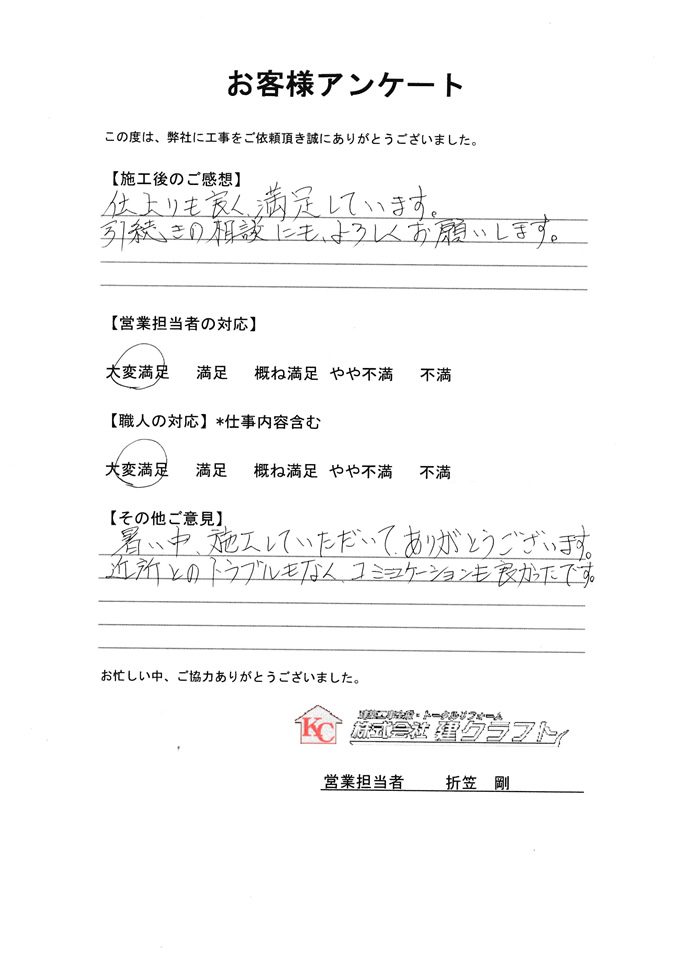 お客様アンケート
この度は、弊社に工事をご依頼頂き誠にありがとうございました。
【施工後のご感想】
仕上りも良く、満足しています。
引続きの相談にも、よろしくお願いします。
【営業担当者の対応】
大変満足 満足 概ね満足 やや不満 不満
【職人の対応】*仕事内容含む
大変満足 満足 概ね満足 やや不満 不満
【その他ご意見】
暑い中、施工していただいて、ありがとうございます。
近所とのトラブルもなく、コミュケーションも良かったです。
お忙しい中、ご協力ありがとうございました。
KC
・トータルリフォーム
株式会社 建クラフト
営業担当者 折笠 剛